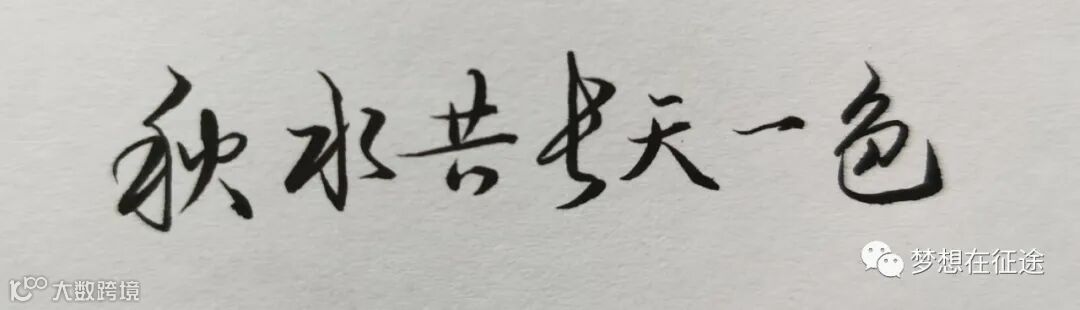 秋水共长天一色
梦想在征途
大数跨境